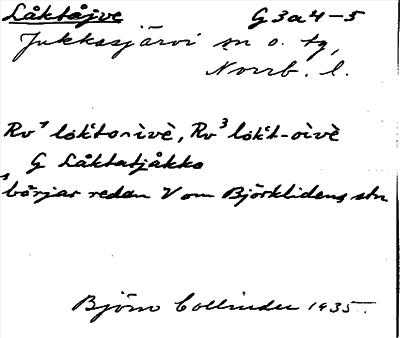 Låktåjve G 3a 4-5
Jukkasjärvi sn o. tg,
Norrb. l.
Rv¹ lok'to-ìvè, Rv³ lok't-oìvè
G Låktatjåkko
¹börjar redan V om Björklidens stn
Björn Collinder 1935.